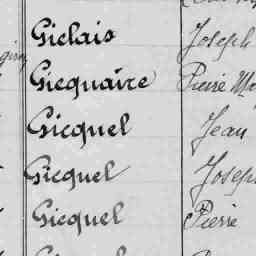 Giclais Joseph
Gicquaire Pierre
Gicquel Jean
Gicquel Joseph
Gicquel Pierre